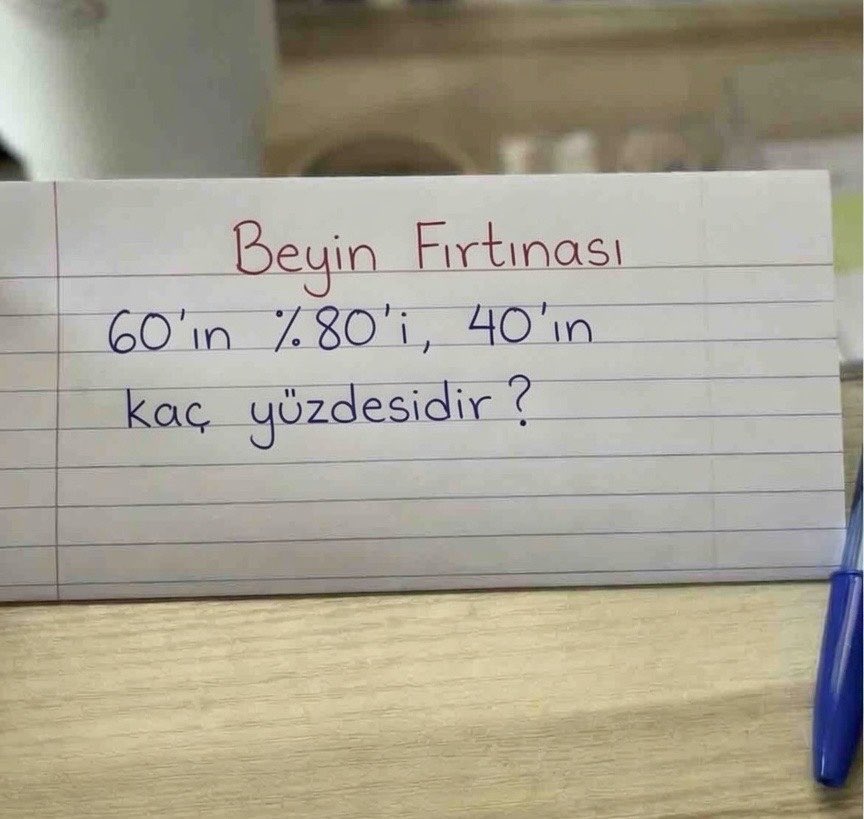 Beyin Fırtınası
60'ın %80'i, 40'ın
kaç yüzdesidir?